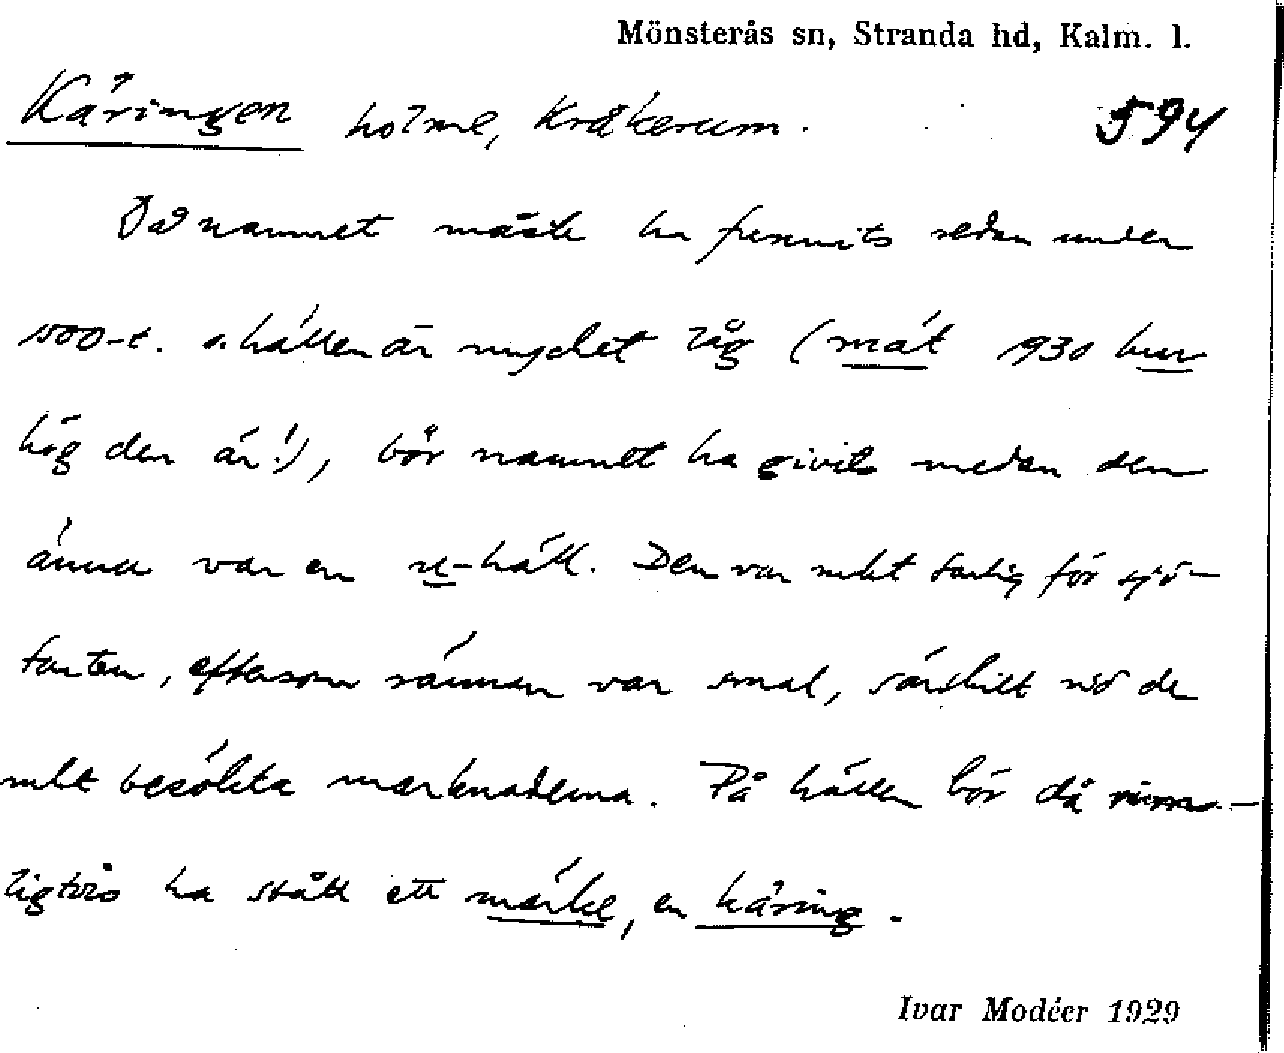 Mönsterås sn, Stranda hd, Kalm. l.
Käringen holme, Kråkerum. 594
Då namnet måste ha funnits sedan under
1500-t. o. hällen är mycket låg (mät 1930 hur
hög den är!), bör namnet ha givits medan den
ännu var en u-häll. Den var nekt farlig för sjö-
farten, eftersom rännan var smal, särskilt vid de
mkt besökta marknaderna. På hällen bör då rim-
ligtvis ha stått ett märke, en käring.
Ivar Modéer 1929